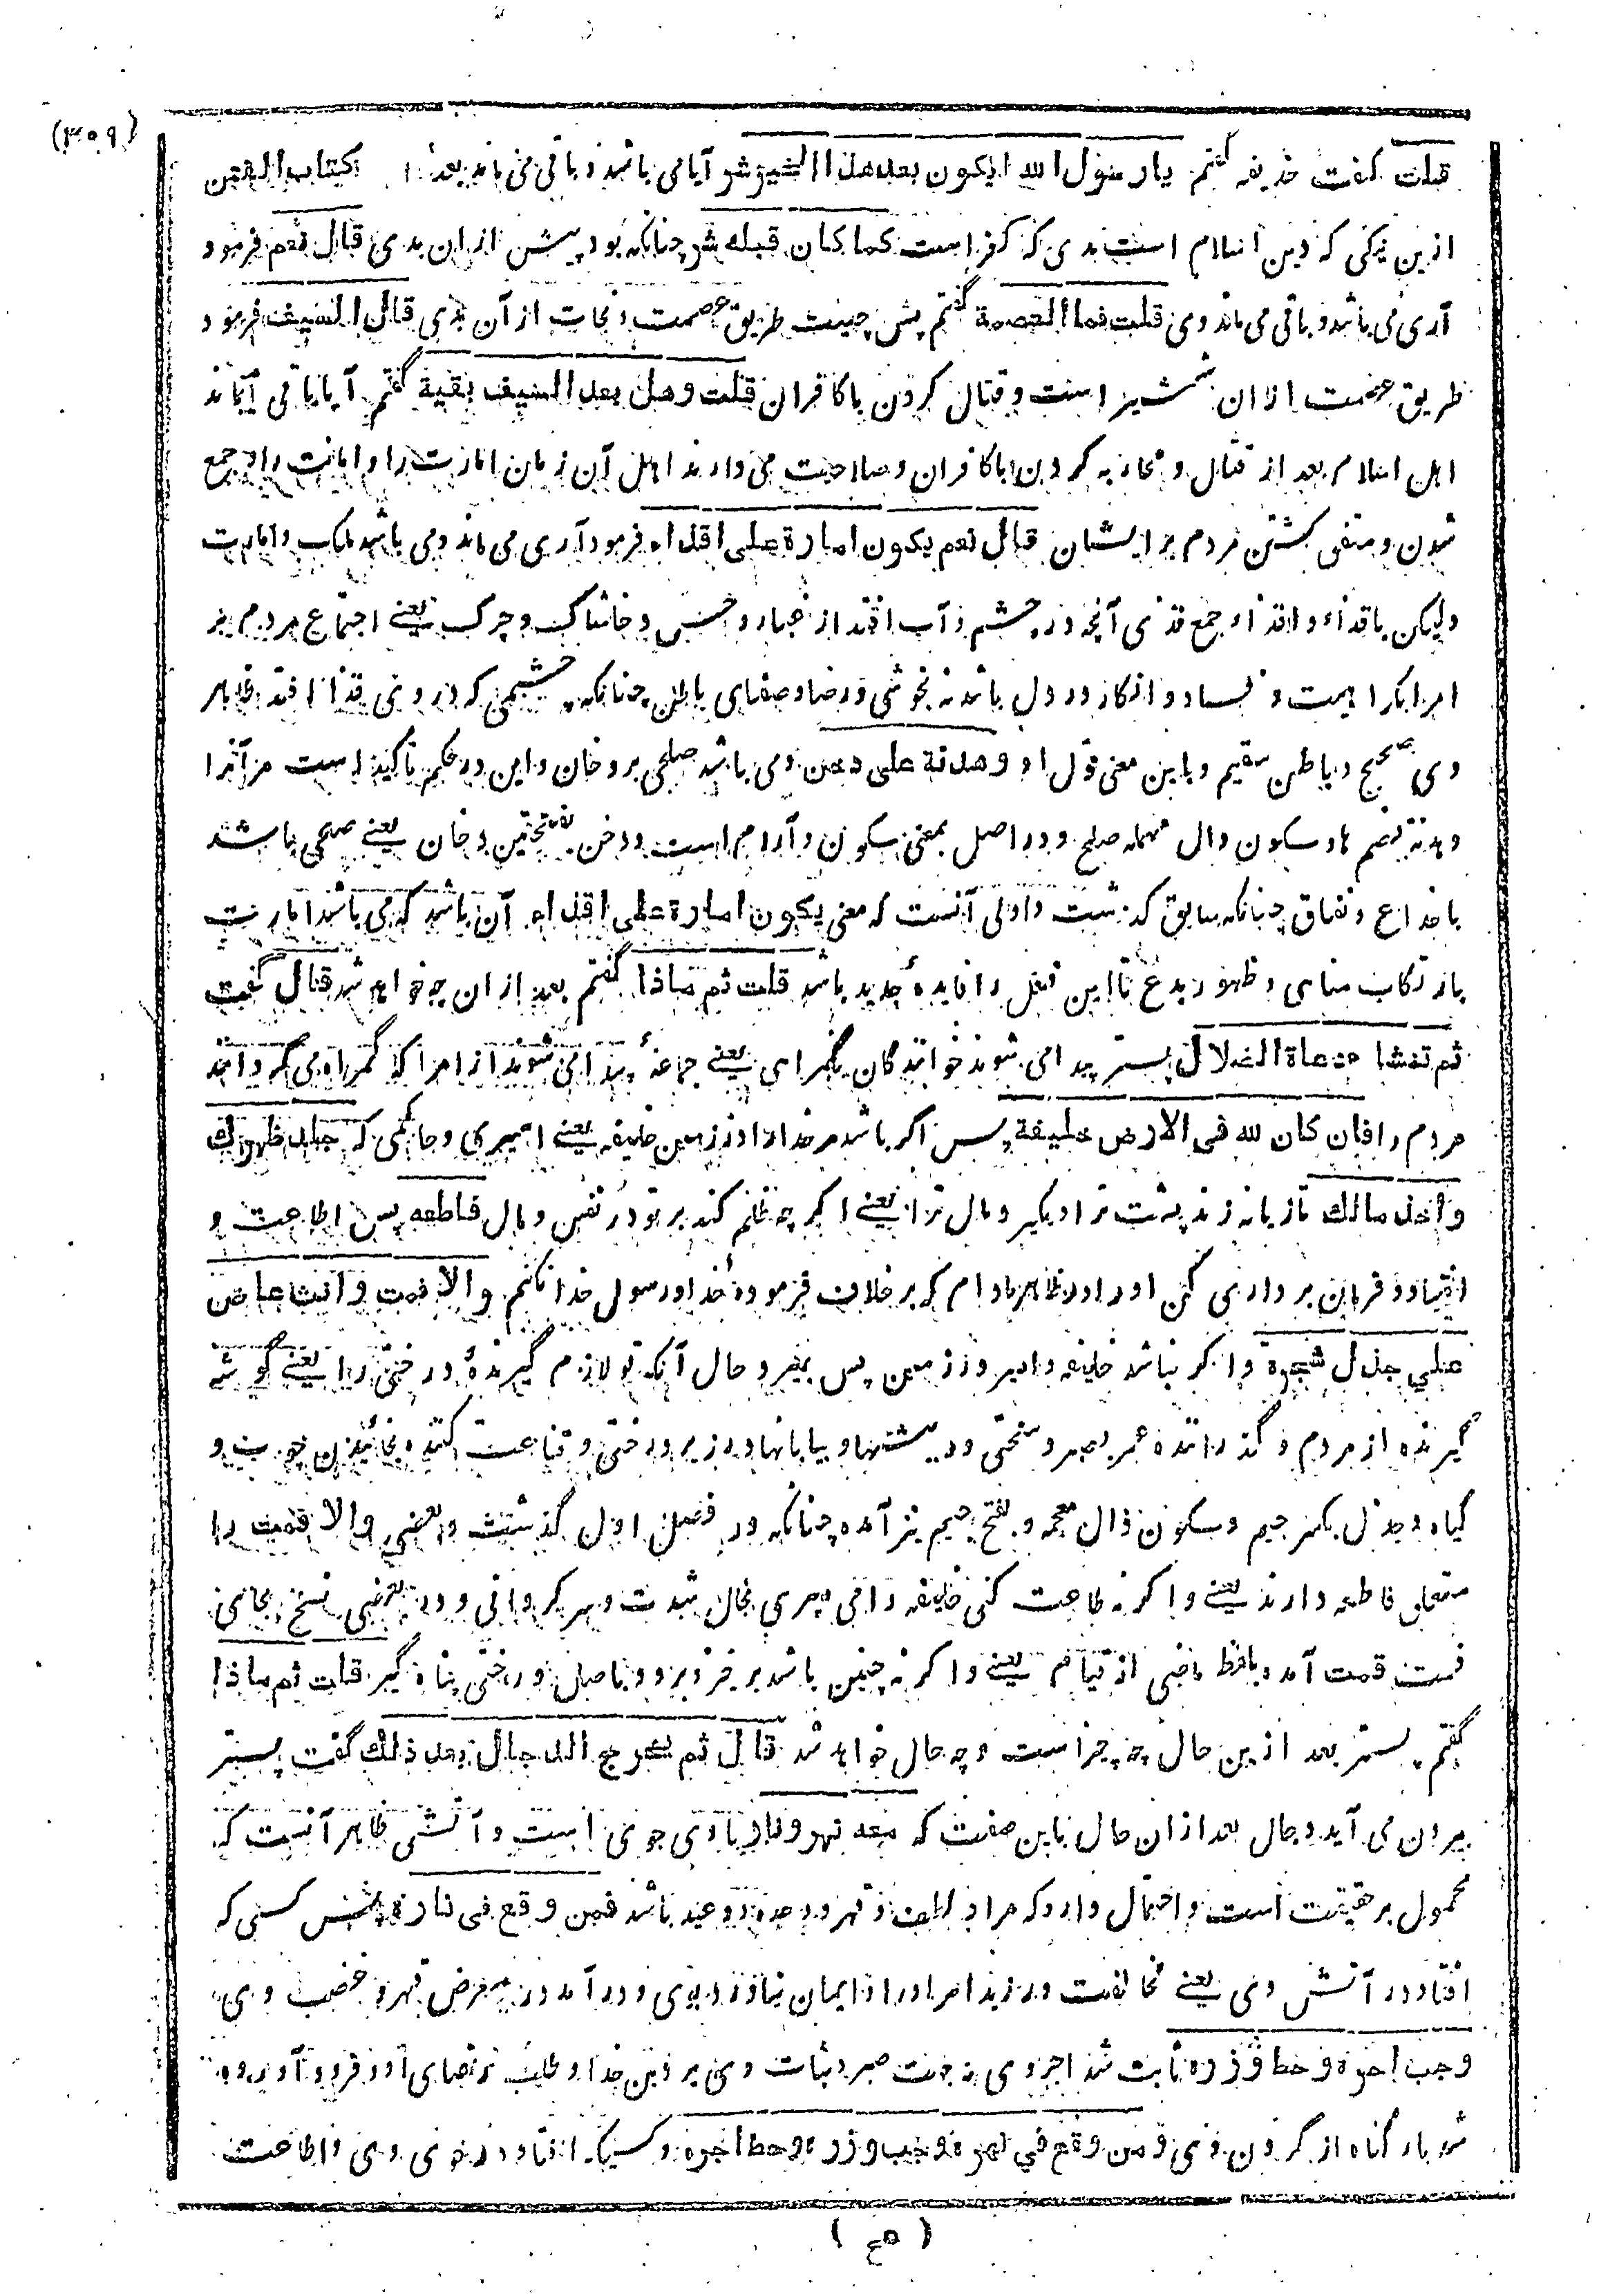 (۳۰۹)
قلت گفت حذیفه گفتم یا رسول الله ایکون بعد هذا الخیر شر آیا می باشد و باقی می ماند بعد از کتاب الفتن
ازین نیکی که دین اسلام است بدی که کفر است کما کان قبله شر چنانکه بود پیش از ان بدی قال نعم فرمود
آری می باشد و باقی می ماند وی قلت فما العصمة گفتم پس چیست طریق عصمت و نجات از آن بدی قال السیف فرمود
طریق عصمت از ان شمشیر است و قتال کردن با کافران قلت وهل بعد السیف بقیة گفتم آیا باقی می ماند
اهل اسلام بعد از قتال و محاربه کردن با کافران و صلاحیت می دارند اهل آن زمان امارت را و امانت را و جمع
شدن و متفق گشتن مردم بر ایشان قال نعم یکون امارة علی اقذاء فرمود آری می ماند و می باشد ملک و امارت
ولیکن با قذاء و اقذاء جمع قذی آنچه در چشم و آب افتد از غبار و خس و خاشاک و چرک یعنے اجتماع مردم بر
امرا بکراهیت و فساد و انکار در دل باشد نه بخوشی و رضا و صفای باطن چنانکه چشمی که در وی قذا افتد ظاهر
وی صحیح و باطن سقیم و باین معنی قول او وهدنة علی دخن و می باشد صلحی بر دخان و این در حکم تاکید است مر آنرا
وهدنة بضم ها و سکون دال مهمله صلح و در اصل بمعنی سکون و آرام است و دخن بفتحتین دخان یعنے صلحی باشد
با خداع و نفاق چنانکه سابق گذشت و اولی آنست که معنی یکون امارة علی اقذاء آن باشد که می باشد امارت
بارتکاب مناهی و ظهور بدع تا این فعل را فایدهٔ جدید باشد قلت ثم ماذا گفتم بعد از ان چه خواهد شد قال گفت
ثم تنشأ دعاة الضلال پستر پیدا می شوند خوانندگان بگمراهی یعنے جماعهٔ پیدا می شوند از امرا که گمراه می گردانند
مردم را فان کان لله فی الارض خلیفة پس اگر باشد مر خدا را در زمین خلیفه یعنے امیری و حاکمی که جلد ظهرك
واخذ مالك تازیانه زند پشت ترا و بگیرد مال ترا یعنے اگر چه ظلم کند بر تو در نفس و مال فاطعه پس اطاعت و
انقیاد و فرمان برداری کن او را در ظاهر مادام که بر خلاف فرمودهٔ خدا و رسول خدا نکنم والا فمت وانت عاض
علی جذل شجرة و اگر نباشد خلیفه و امیر در زمین پس بمیر و حال آنکه تو لازم گیرندهٔ درختی را یعنے گوشه
گیرنده از مردم و گذراننده عمر بصبر و سختی در بیشتها و بیابانها و زیر درختی و قناعت کننده بخائیدن چوب و
گیاه و جذل بکسر جیم و سکون ذال معجمه و بفتح جیم نیز آمده چنانکه در فصل اول گذشت و بعضی والا فمت را
متعلق فاطعه دارند یعنے و اگر نه طاعت کنی خلیفه را می میری بحال شدت و سرگردانی و در بعضی نسخ بجای
فمت قمت آمده بلفظ ماضی از قیام یعنے و اگر نه چنین باشد برخیز و برو و باصل درختی پناه گیر قلت ثم ماذا
گفتم پستر بعد ازین حال چه چیز است و چه حال خواهد شد قال ثم یخرج الدجال بعد ذلك گفت پستر
بیرون می آید دجال بعد از ان حال باین صفت که معه نهر ونار با وی جوی است و آتشی ظاهر آنست که
محمول بر حقیقت است و احتمال دارد که مراد لطف و قهر و وعده و وعید باشد فمن وقع فی ناره پس کسی که
افتاد در آتش وی یعنے مخالفت ورزید امر او را و ایمان نیاورد بوی و در آمد در معرض قهر و غضب وی
وجب اجره وحط وزره ثابت شد اجر وی به جهت صبر و ثبات وی بر دین خدا و طلب رضای او و فرود آورده
شد بار گناه از گردن وی ومن وقع فی نهره وجب وزره وحط اجره و کسیکه افتاد در جوی وی و اطاعت
(ع ۵)